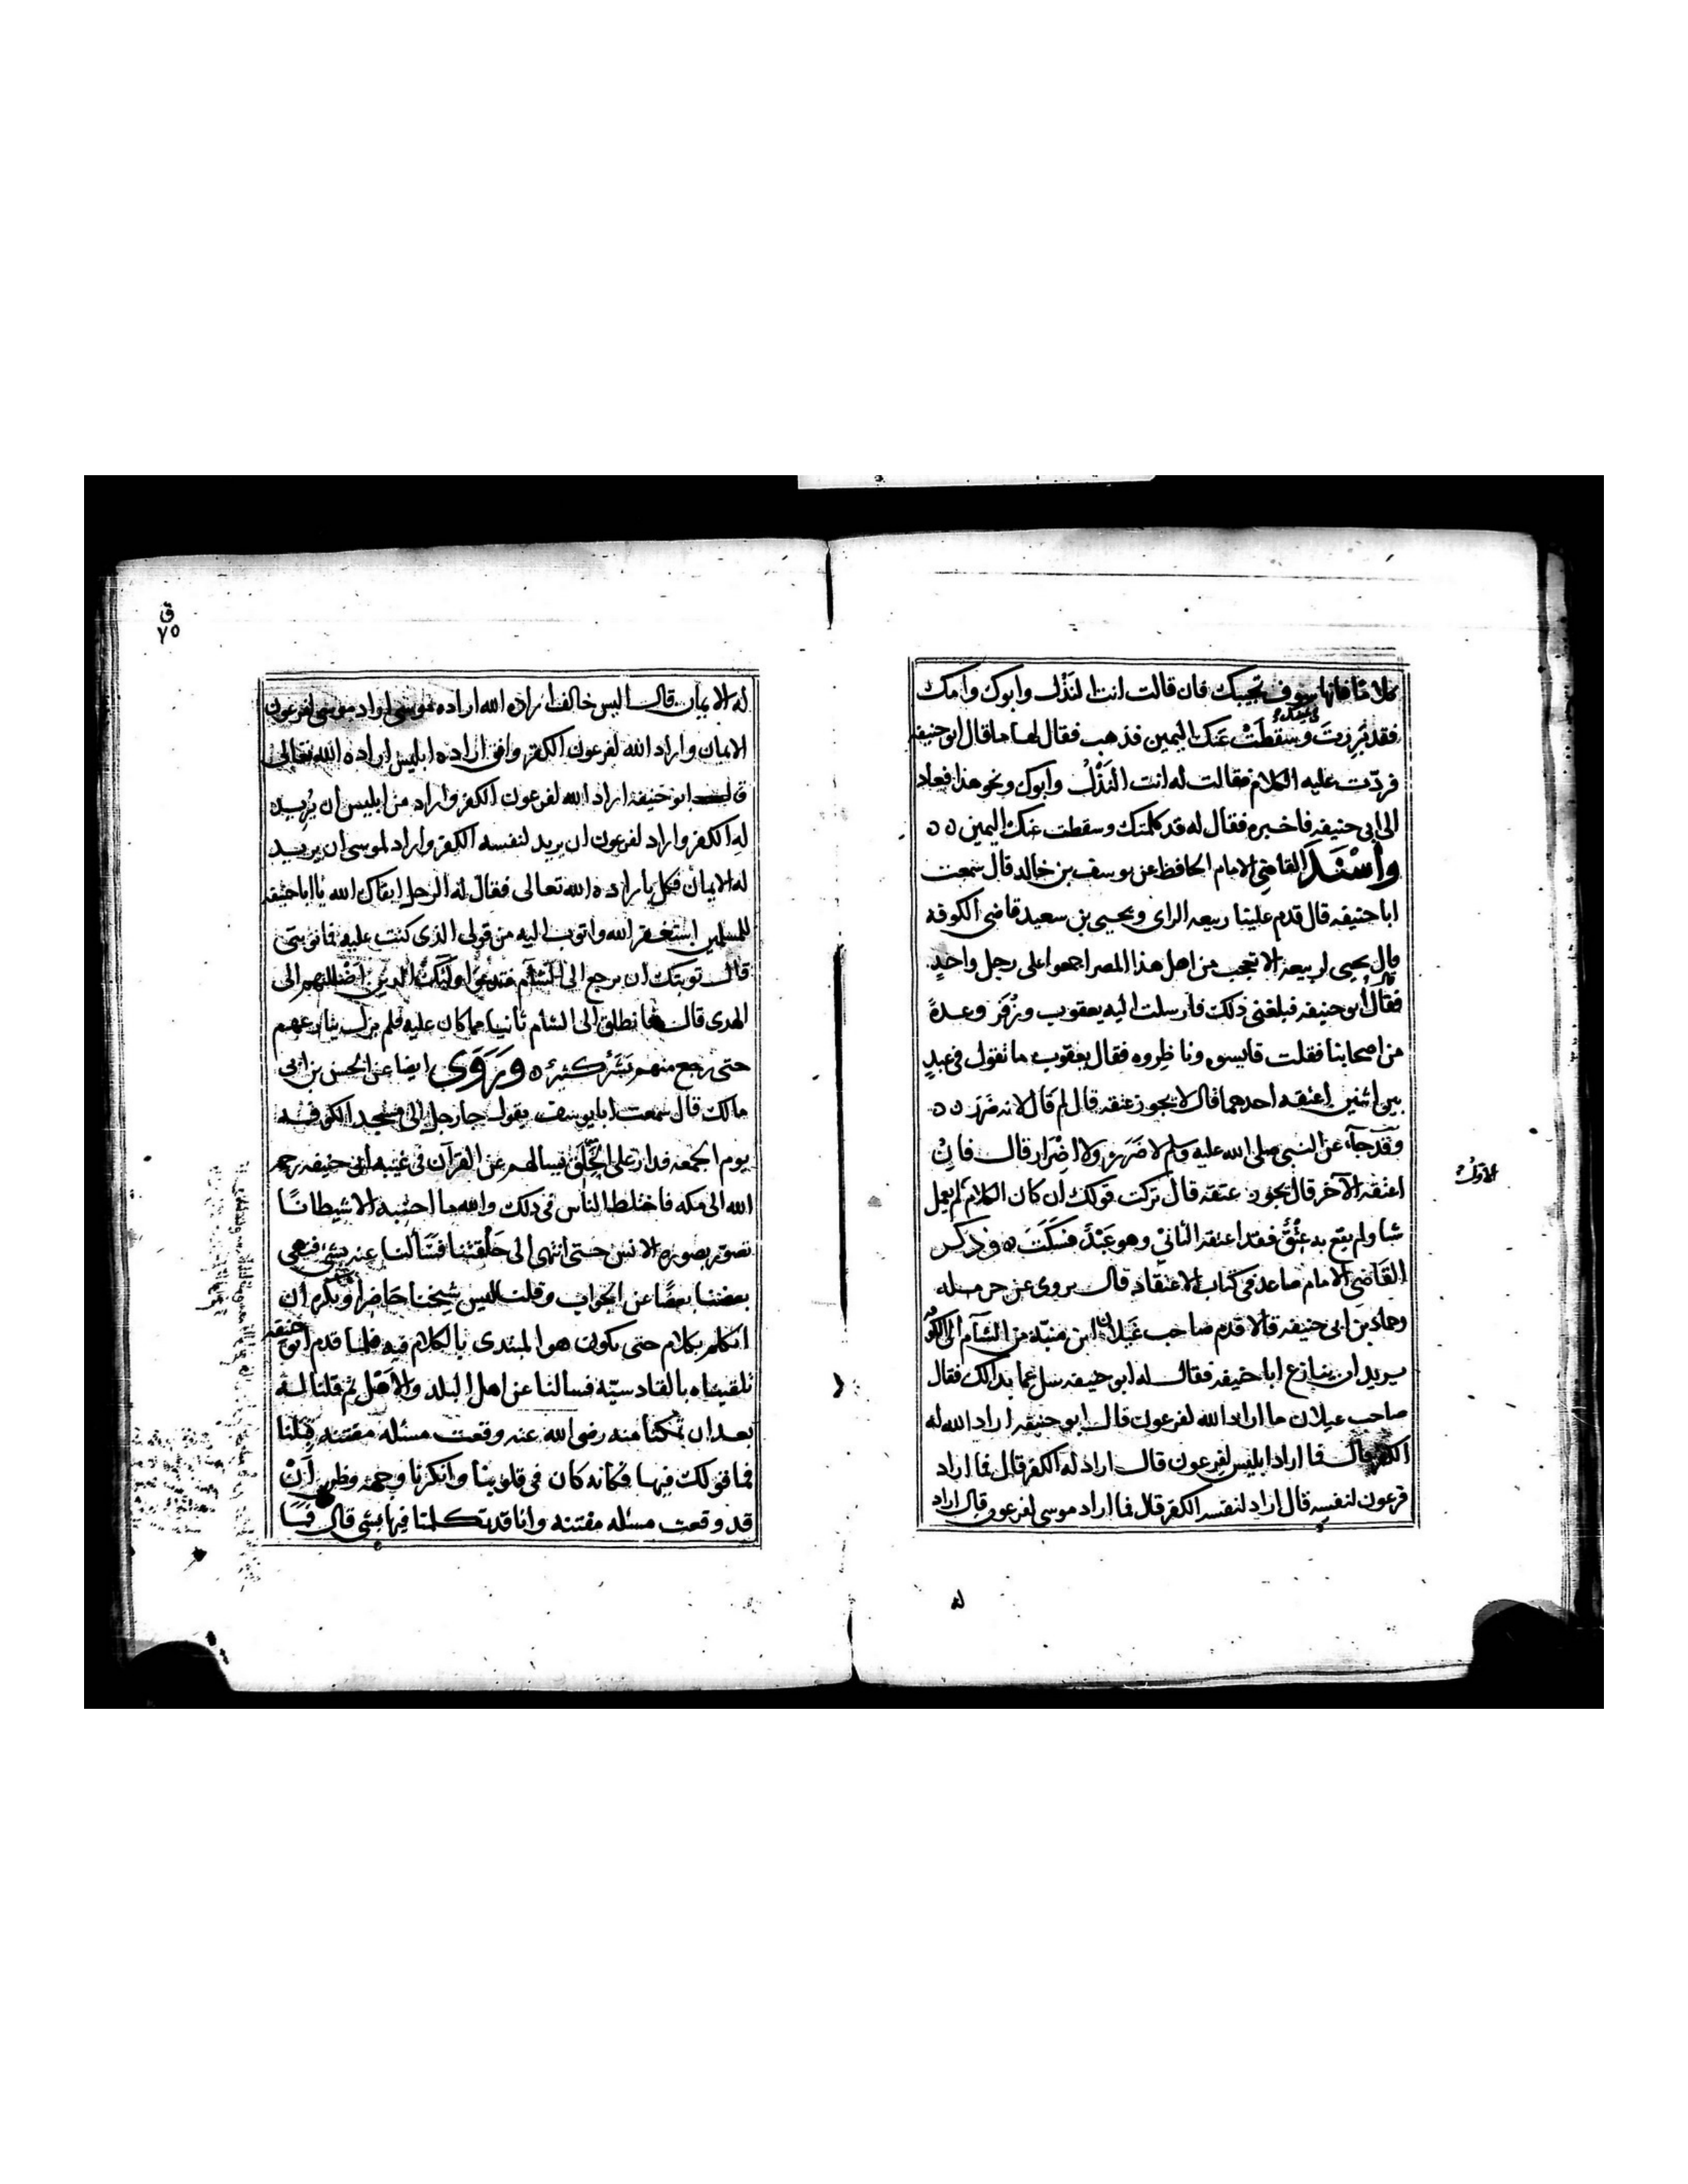 كلاما فانها سوف تجيبك فان قالت انت النذل وابوك وامك
فقد بررت وسقطت عنك اليمين فذهب فقال لها ما قال ابو حنيفه
فردت عليه الكلام فقالت له انت النذل وابوك ونحو هذا فعاد
الى ابى حنيفه فاخبره فقال له قد كلمتك وسقطت عنك اليمين
وأسند القاضى الامام الحافظ عن يوسف بن خالد قال سمعت
ابا حنيفه قال قدم علينا ربيعه الراى ويحيى بن سعيد قاضى الكوفه
قال يحيى لربيعه الا تعجب من اهل هذا المصر اجمعوا على رجل واحد
فقال ابو حنيفه فبلغنى ذلك فارسلت اليه يعقوب وزفر وعدة
من اصحابنا فقلت قايسوه وناظروه فقال يعقوب ما تقول فى عبد
بين اثنين اعتقه احدهما قال لا يجوز عتقه قال لم قال لانه ضرر
وقد جآء عن النبى صلى الله عليه وسلم لا ضرر ولا اضرار قال فان
اعتقه الآخر قال يجوز عتقه قال تركت قولك ان كان الكلام لم يعمل
الاول
شيا ولم يقع به عتق فقد اعتقه الثانى وهو عبد فسكت وذكر
القاضى الامام صاعد فى كتاب الاعتقاد قال يروى عن حرمله
وحماد بن ابى حنيفه قالا قدم صاحب غيلان ابن منبه من الشآم الى الكوفه
يريد ان ينازع ابا حنيفه فقال له ابو حنيفه سل عما بدا لك فقال
صاحب غيلان ما اراد الله لفرعون قال ابو حنيفه اراد الله له
الكفر قال فما اراد ابليس لفرعون قال اراد له الكفر قال فما اراد
فرعون لنفسه قال اراد لنفسه الكفر قال فما اراد موسى لفرعون قال اراد
له
ق
٧٥
له الايمان قال اليس خالف ارادة الله اراده موسى اراد موسى لفرعون
الايمان واراد الله لفرعون الكفر وافق اراده ابليس اراده الله تعالى
قال ابو حنيفه اراد الله لفرعون الكفر واراد من ابليس ان يريد
له الكفر واراد لفرعون ان يريد لنفسه الكفر واراد لموسى ان يريد
له الايمان فكل بارادة الله تعالى فقال له الرجل ابقاك الله يا ابا حنيفه
للمسلمين استغفر الله واتوب اليه من قولى الذى كنت عليه فما توبتى
قال توبتك ان ترجع الى الشآم فتدعوا اولئك الذين اضللتهم الى
الهدى قال فانطلق الى الشام ثانيا مما كان عليه فلم يزل ينازعهم
حتى رجع منهم بشر كثير وروى ايضا عن الحسن بن ابى
مالك قال سمعت ابا يوسف يقول جا رجل الى مسجد الكوفه
يوم الجمعه فدار على الحلق فيسالهم عن القرآن فى غيبه ابى حنيفه رحمه
الله الى مكه فاختلط الناس فى ذلك والله ما احسبه الا شيطانا
تصور بصوره الانس حتى انتهى الى حلقتنا فسألنا عنه بشى فنهى
بعضنا بعضا عن الجواب وقلنا ليس شيخنا حاضرا ونكره ان
نتكلم بكلام حتى يكون هو المبتدى بالكلام فيه فلما قدم ابو حنيفه
تلقيناه بالقادسيه فسالنا عن اهل البلد والاهل ثم قلنا له
بعد ان تمكنا منه رضى الله عنه وقعت مسئله مفتنه قبلنا
فما قولك فيها فكانه كان فى قلوبنا وانكرنا وجهه وظن ان
قد وقعت مسئله مفتنه وانا قد تكلمنا فيها بشى قال فما